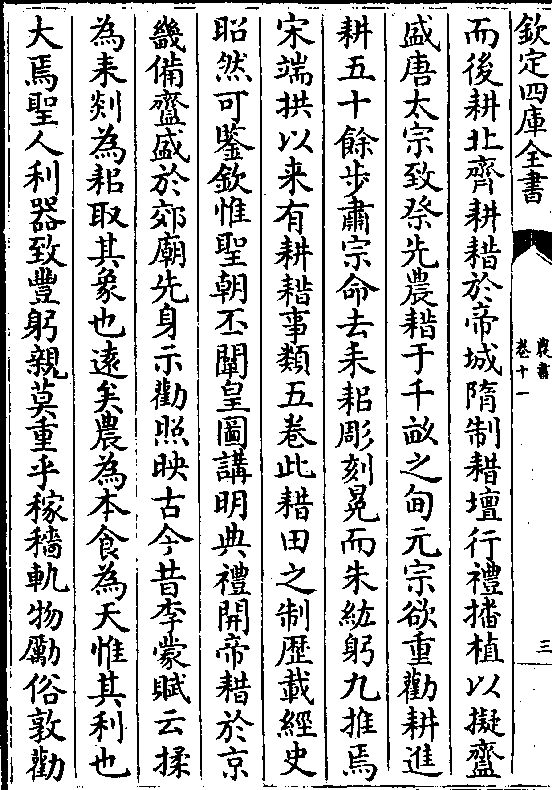 欽定四庫全書
農書
卷十一
三
而後耕北齊耕耤於帝城隋制耤壇行禮播植以擬齍
盛唐太宗致祭先農耤于千畝之甸元宗欲重勸耕進
耕五十餘步肅宗命去耒耜彫刻冕而朱紘躬九推焉
宋端拱以来有耕耤事類五卷此耤田之制歴載經史
昭然可鑒欽惟聖朝丕闡皇圖講明典禮開帝耤於京
畿備齍盛於郊廟先身示勸照映古今昔李蒙賦云揉
為耒剡為耜取其象也遠矣農為本食為天惟其利也
大焉聖人利器致豐躬親莫重乎稼穡軌物勵俗敦勸